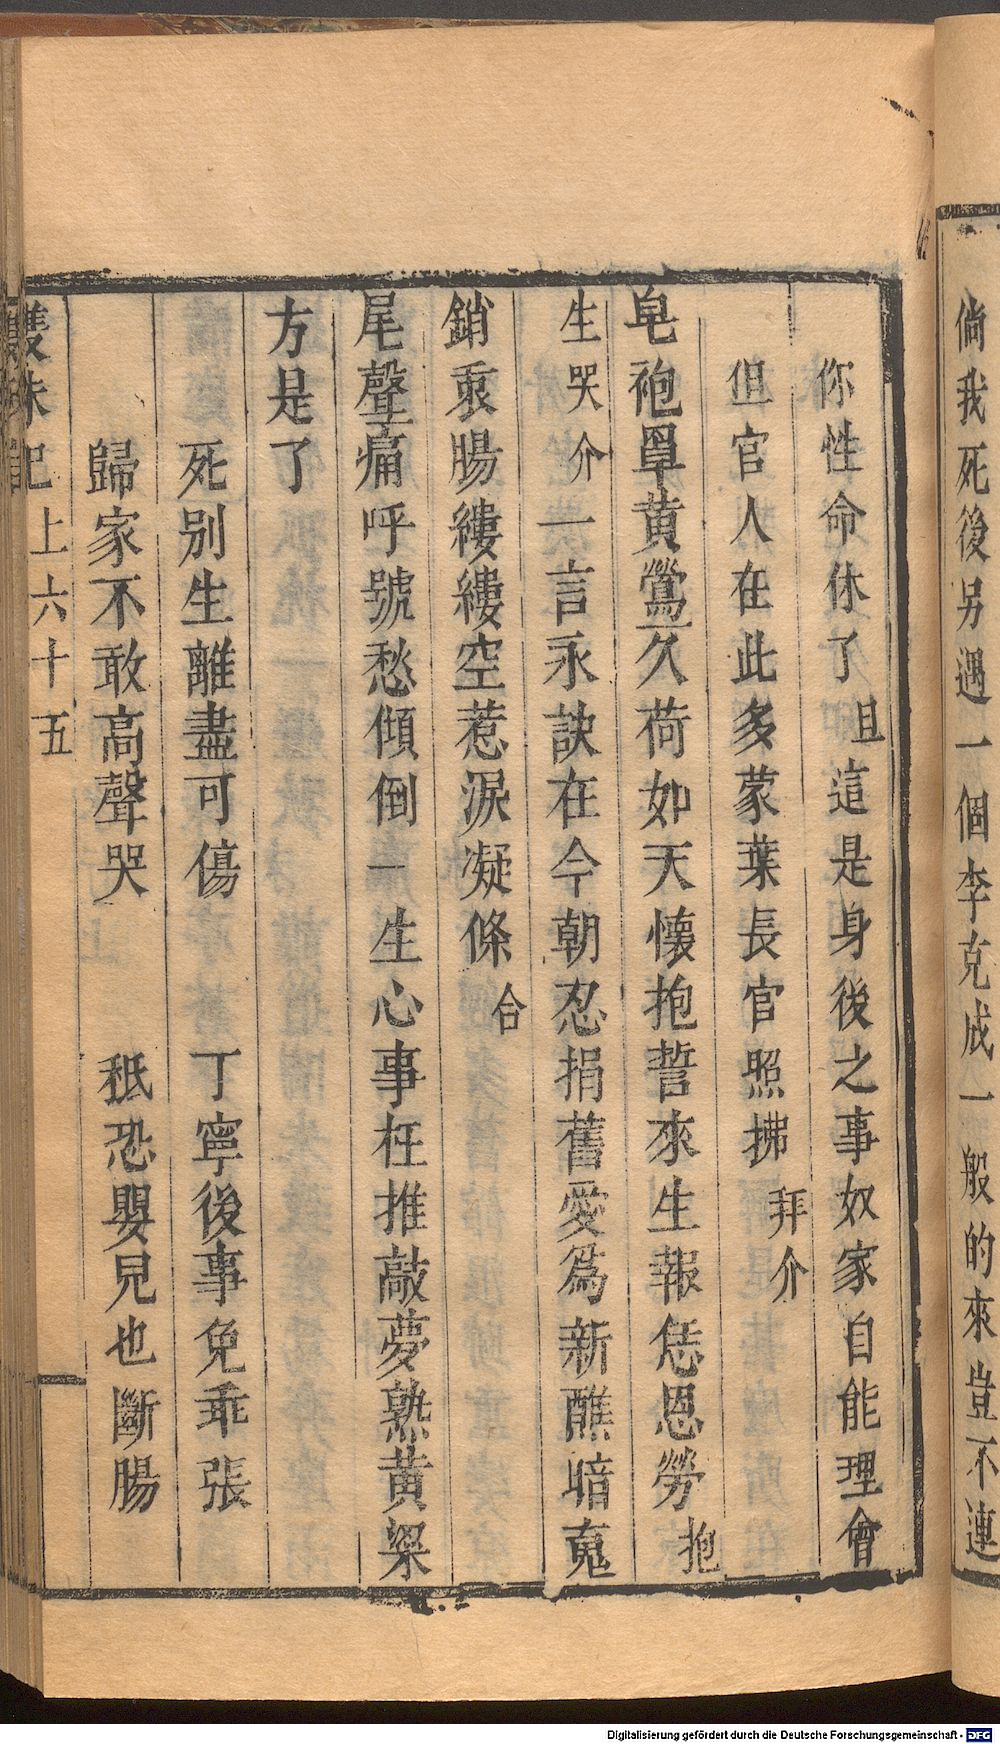 倘我死後另遇一個李克成一般的來豈不連
你性命休了且這是身後之事奴家自能理會
但官人在此多蒙葉長官照拂拜介
皂袍罩黃鶯久荷如天懷抱誓來生報恁恩勞抱
生哭介一言永訣在今朝忍捐舊愛爲新醮暗䰟
銷衷腸縷縷空惹淚凝條合
尾聲痛呼號愁傾倒一生心事枉推敲夢熟黃粱
方是了
死別生離盡可傷丁寧後事免乖張
歸家不敢高聲哭秪恐嬰兒也斷腸
雙珠記上六十五
Digitalisierung gefördert durch die Deutsche Forschungsgemeinschaft - DFG